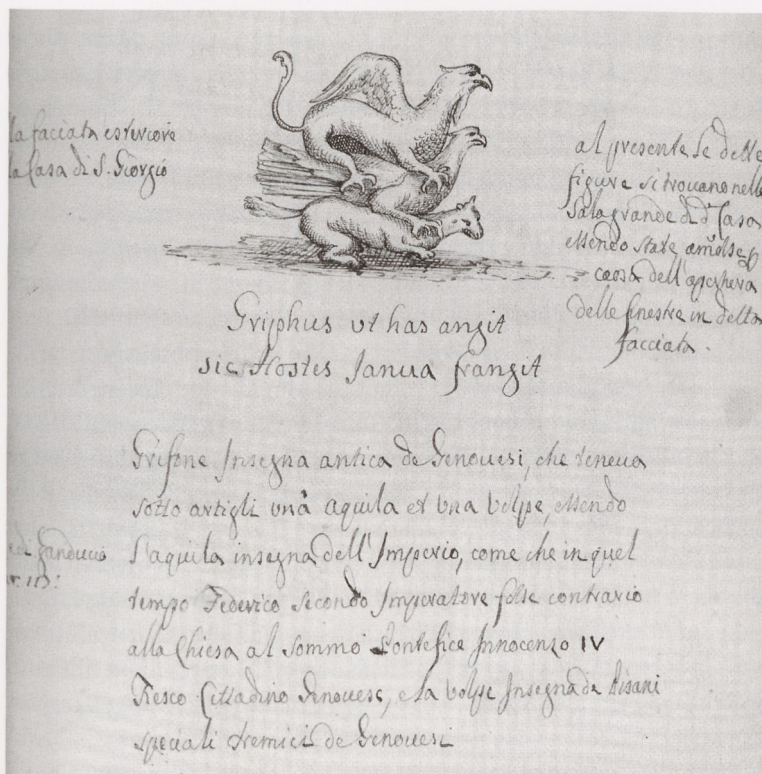 la facciata esteriore
la Casa di S. Giorgio
al presente le dette
figure si trovano nella
Sala grande di dª Casa
essendo state amosse p
causa dell'apertura
delle finestre in detta
facciata.
Griphus ut has angit
sic Hostes Janua frangit
Grifone Insegna antica de Genovesi, che teneva
sotto artigli una aquila et una volpe, essendo
l'aquila insegna dell'Imperio, come che in quel
tempo Federico secondo Imperatore fosse contrario
alla Chiesa al sommo Pontefice Innocenzo IV
Fiesco Cittadino Genovese, e la volpe Insegna de Pisani
speciali nemici de Genovesi
Ganducio